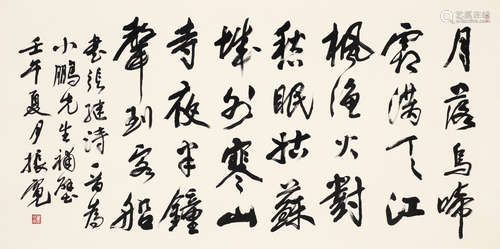 月落烏啼
霜满天江
楓渔火對
愁眠姑蘇
城外寒山
寺夜半鐘
聲到客船
書張继詩一首為
小鵬先生補壁
壬午夏月振